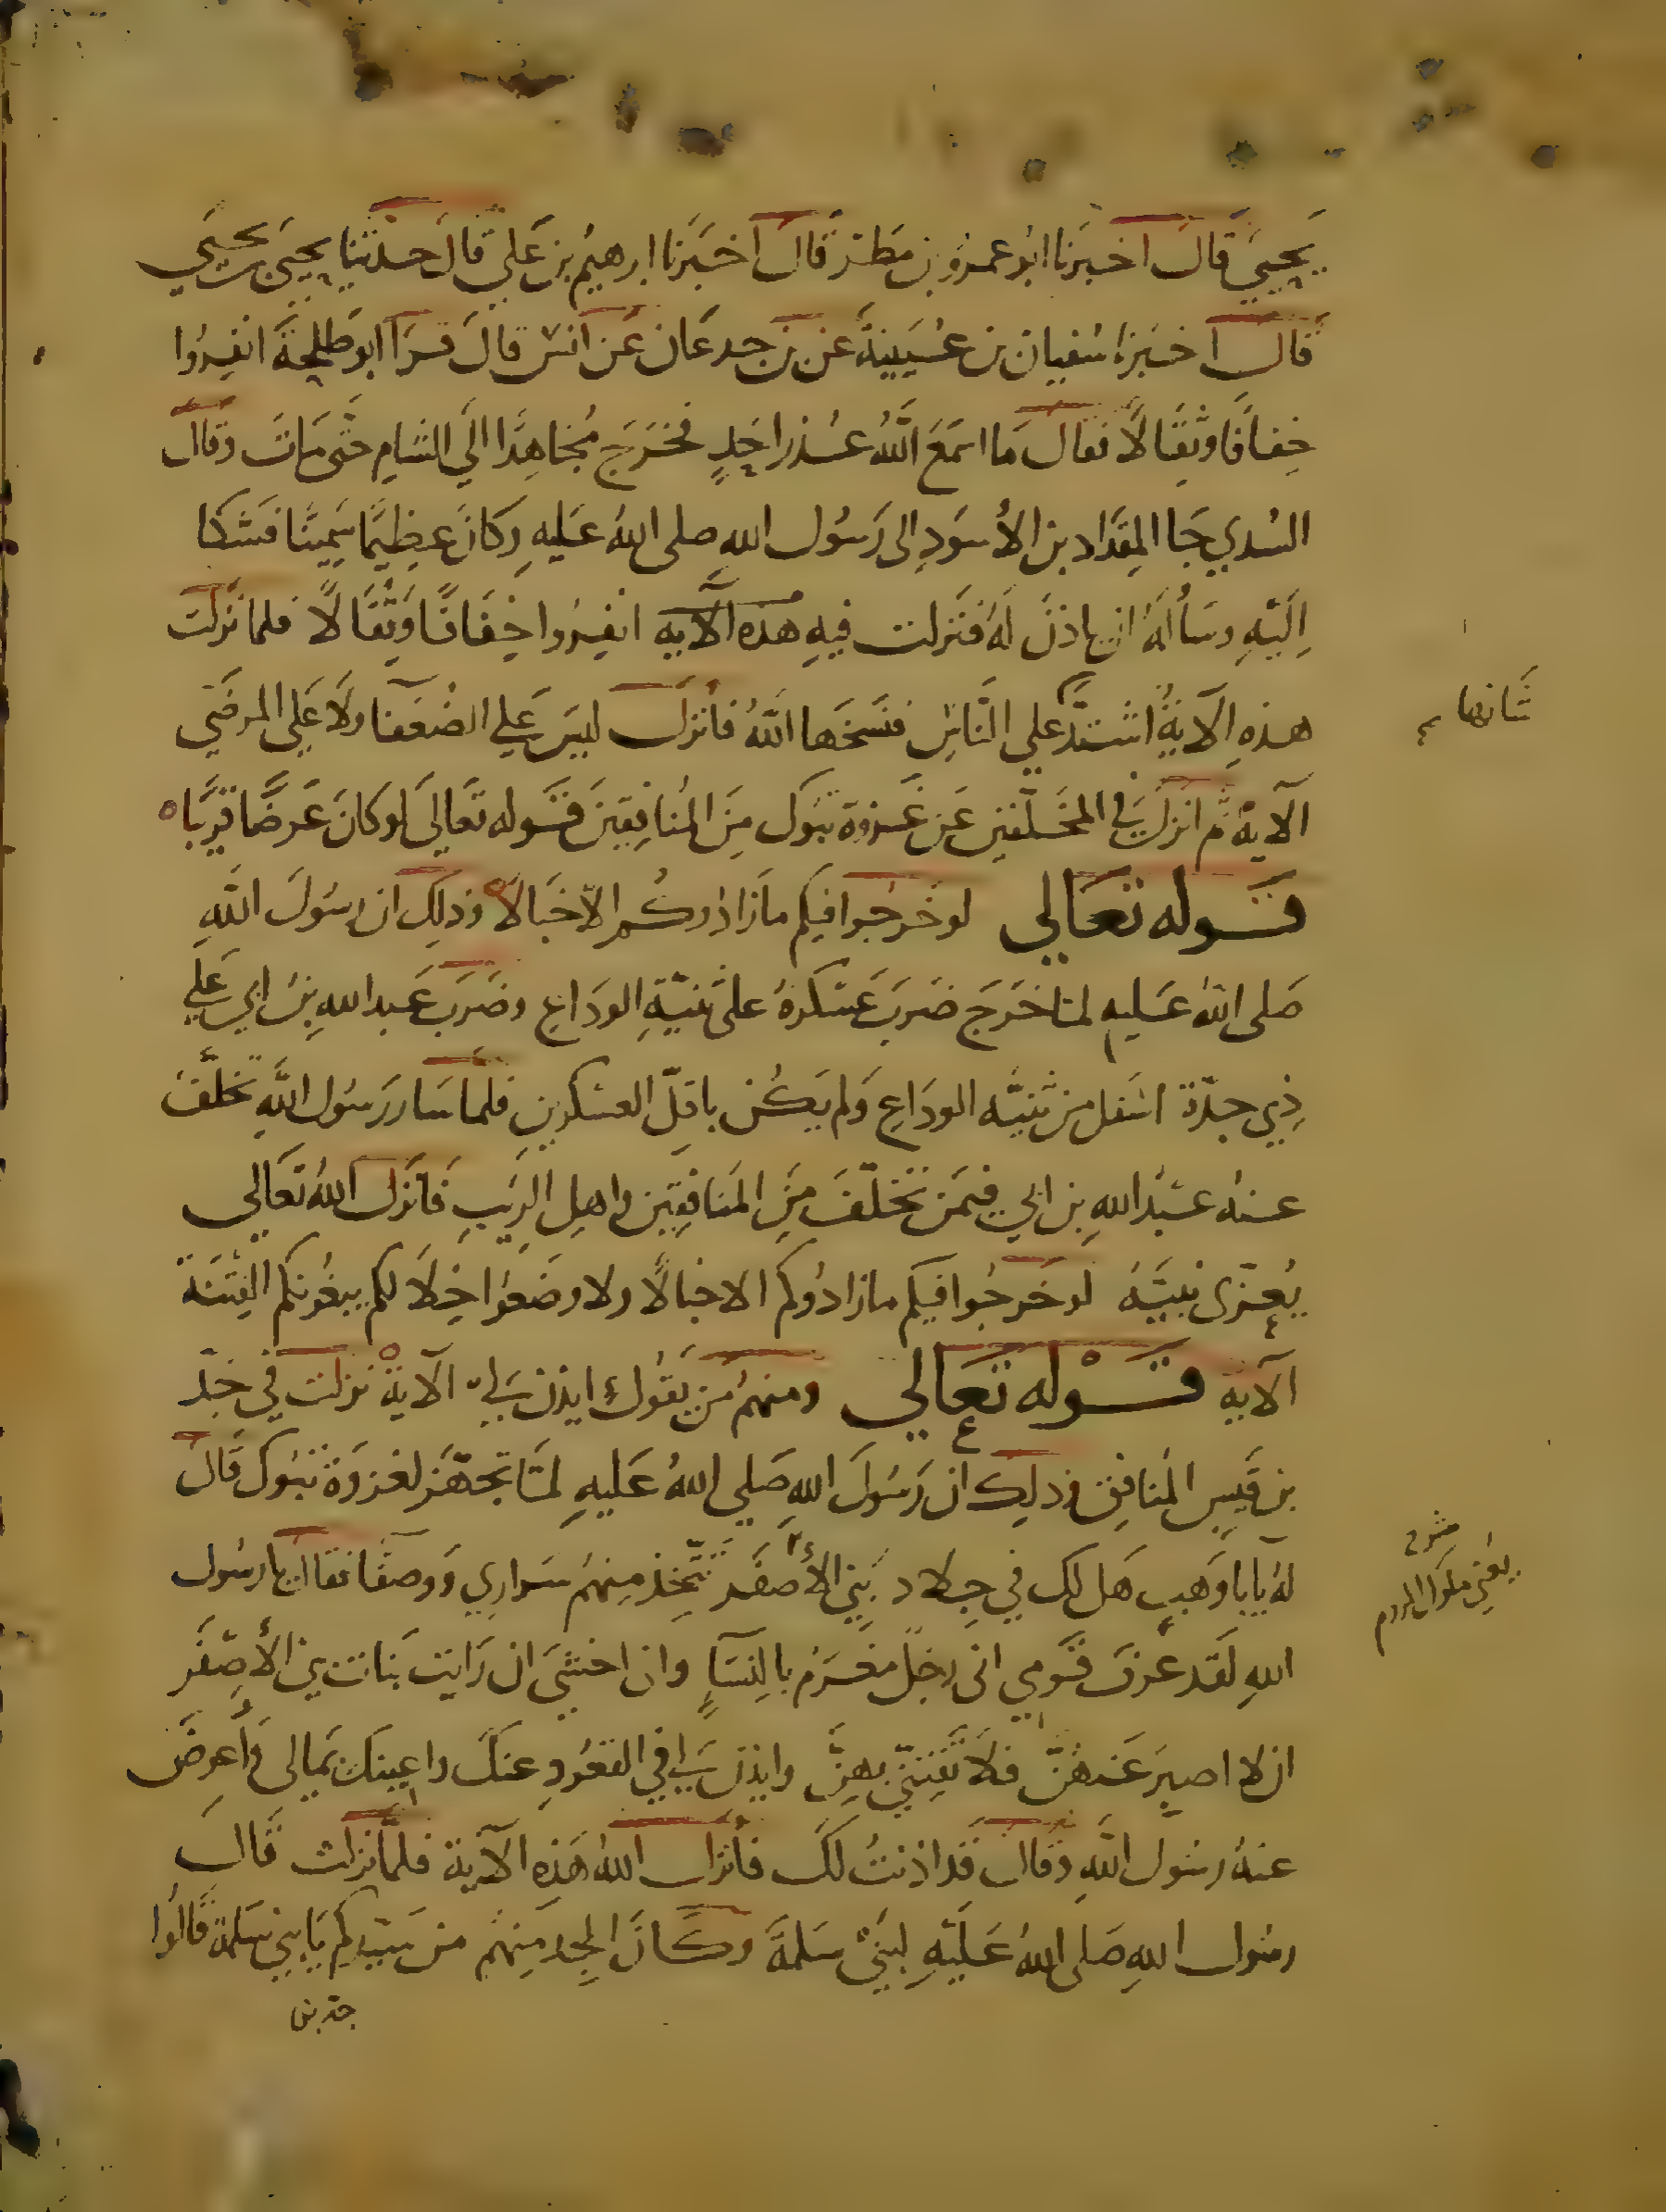 يحيى قال اخبرنا ابو عمرو بن مطر قال اخبرنا ابرهيم بن علي قال حدثنا يحيى بن يحيى
قال اخبرنا سفيان بن عيينة عن بن جدعان عن انس قال قرا ابو طلحة انفروا
خفافا وثقالا فقال ما اسمع الله عذر احد فخرج مجاهدا الى الشام حتى مات وقال
السدي جا المقداد بن الأسود الى رسول الله صلى الله عليه وكان عظيما سمينا فشكا
اليه وسأله ان ياذن له فنزلت فيه هذه الآيه انفروا خفافا وثقالا فلما نزلت
هذه الآية اشتد على الناس فنسخها الله فانزل ليس على الضعفا ولا على المرضى
شانها
الآية ثم انزل في المخلفين عن غزوة تبوك من المنافقين قوله تعالى لو كان عرضا قريبا ه
قوله تعالى لو خرجوا فيكم ما زادوكم الا خبالا وذلك ان رسول الله
صلى الله عليه لما خرج ضرب عسكره على ثنية الوداع وضرب عبد الله بن ابي على
ذي جدة اسفل من ثنيه الوداع ولم يكن باقل العسكرين فلما سار رسول الله تخلف
عنه عبد الله بن ابي فيمن تخلف من المنافقين واهل الريب فانزل الله تعالى
يعزى نبيه لو خرجوا فيكم ما زادوكم الا خبالا ولا وضعوا خلالكم يبغونكم الفتنة
الآية قوله تعالى ومنهم من يقول ايذن لي الآية نزلت في جد
بن قيس المنافق وذلك ان رسول الله صلى الله عليه لما تجهز لغزوة تبوك قال
له يابا وهب هل لك في جلاد بني الأصفر تتخذ منهم سراري ووصفا فقال يا رسول
يعني ملوك الروم
الله لقد عرف قومي انى رجل مغرم بالنسآ وان اخشى ان رايت بنات بني الأصفر
ان لا اصبر عنهن فلا تفتني بهن وايذن لي في القعود عنك واعينك بمالى فأعرض
عنه رسول الله وقال قد اذنت لك فأنزل الله هذه الآية فلما نزلت قال
رسول الله صلى الله عليه لبني سلمة وكان الجد منهم من سيدكم يا بني سلمة قالوا
جد بن